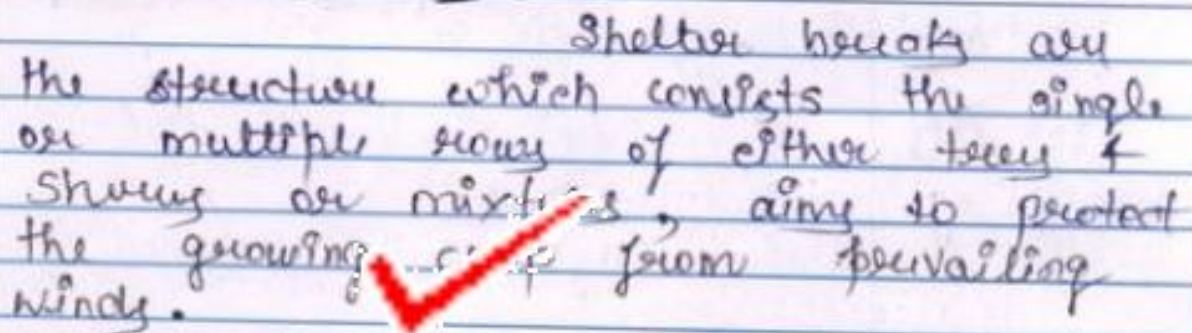 Shelter breaks are
the structure which consists the single
or multiple rows of either trees &
Shrubs or mixtures, aims to protect
the growing crop from prevailing
winds.